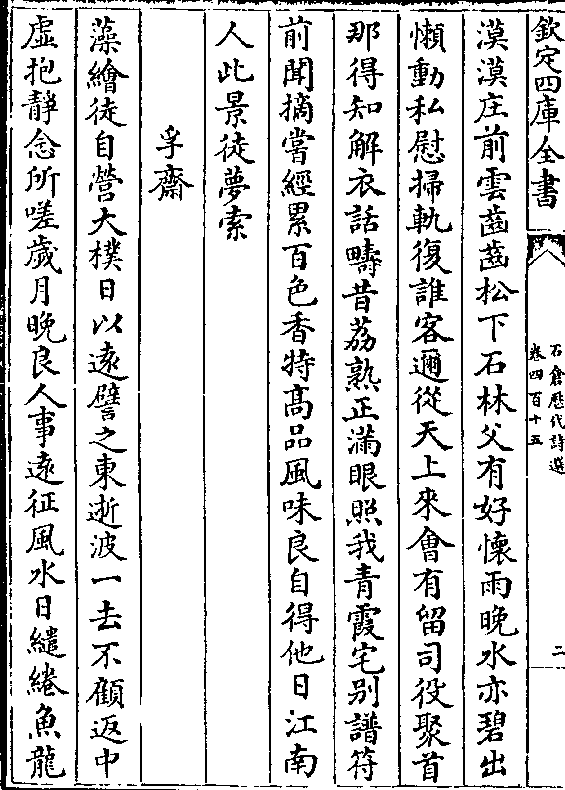 欽定四庫全書
石倉歷代詩選
卷四百十五
二
漠漠庄前雲齒齒松下石林父有好懷雨晚水亦碧出
懶動私慰掃軌復誰客邇從天上來會有留司役聚首
那得知解衣話疇昔荔熟正滿眼照我青霞宅別譜符
前聞摘嘗經累百色香特高品風味良自得他日江南
人此景徒夢索
孚齋
藻繪徒自營大樸日以遠譬之東逝波一去不顧返中
虛抱靜念所嗟歲月晚良人事遠征風水日繾綣魚龍